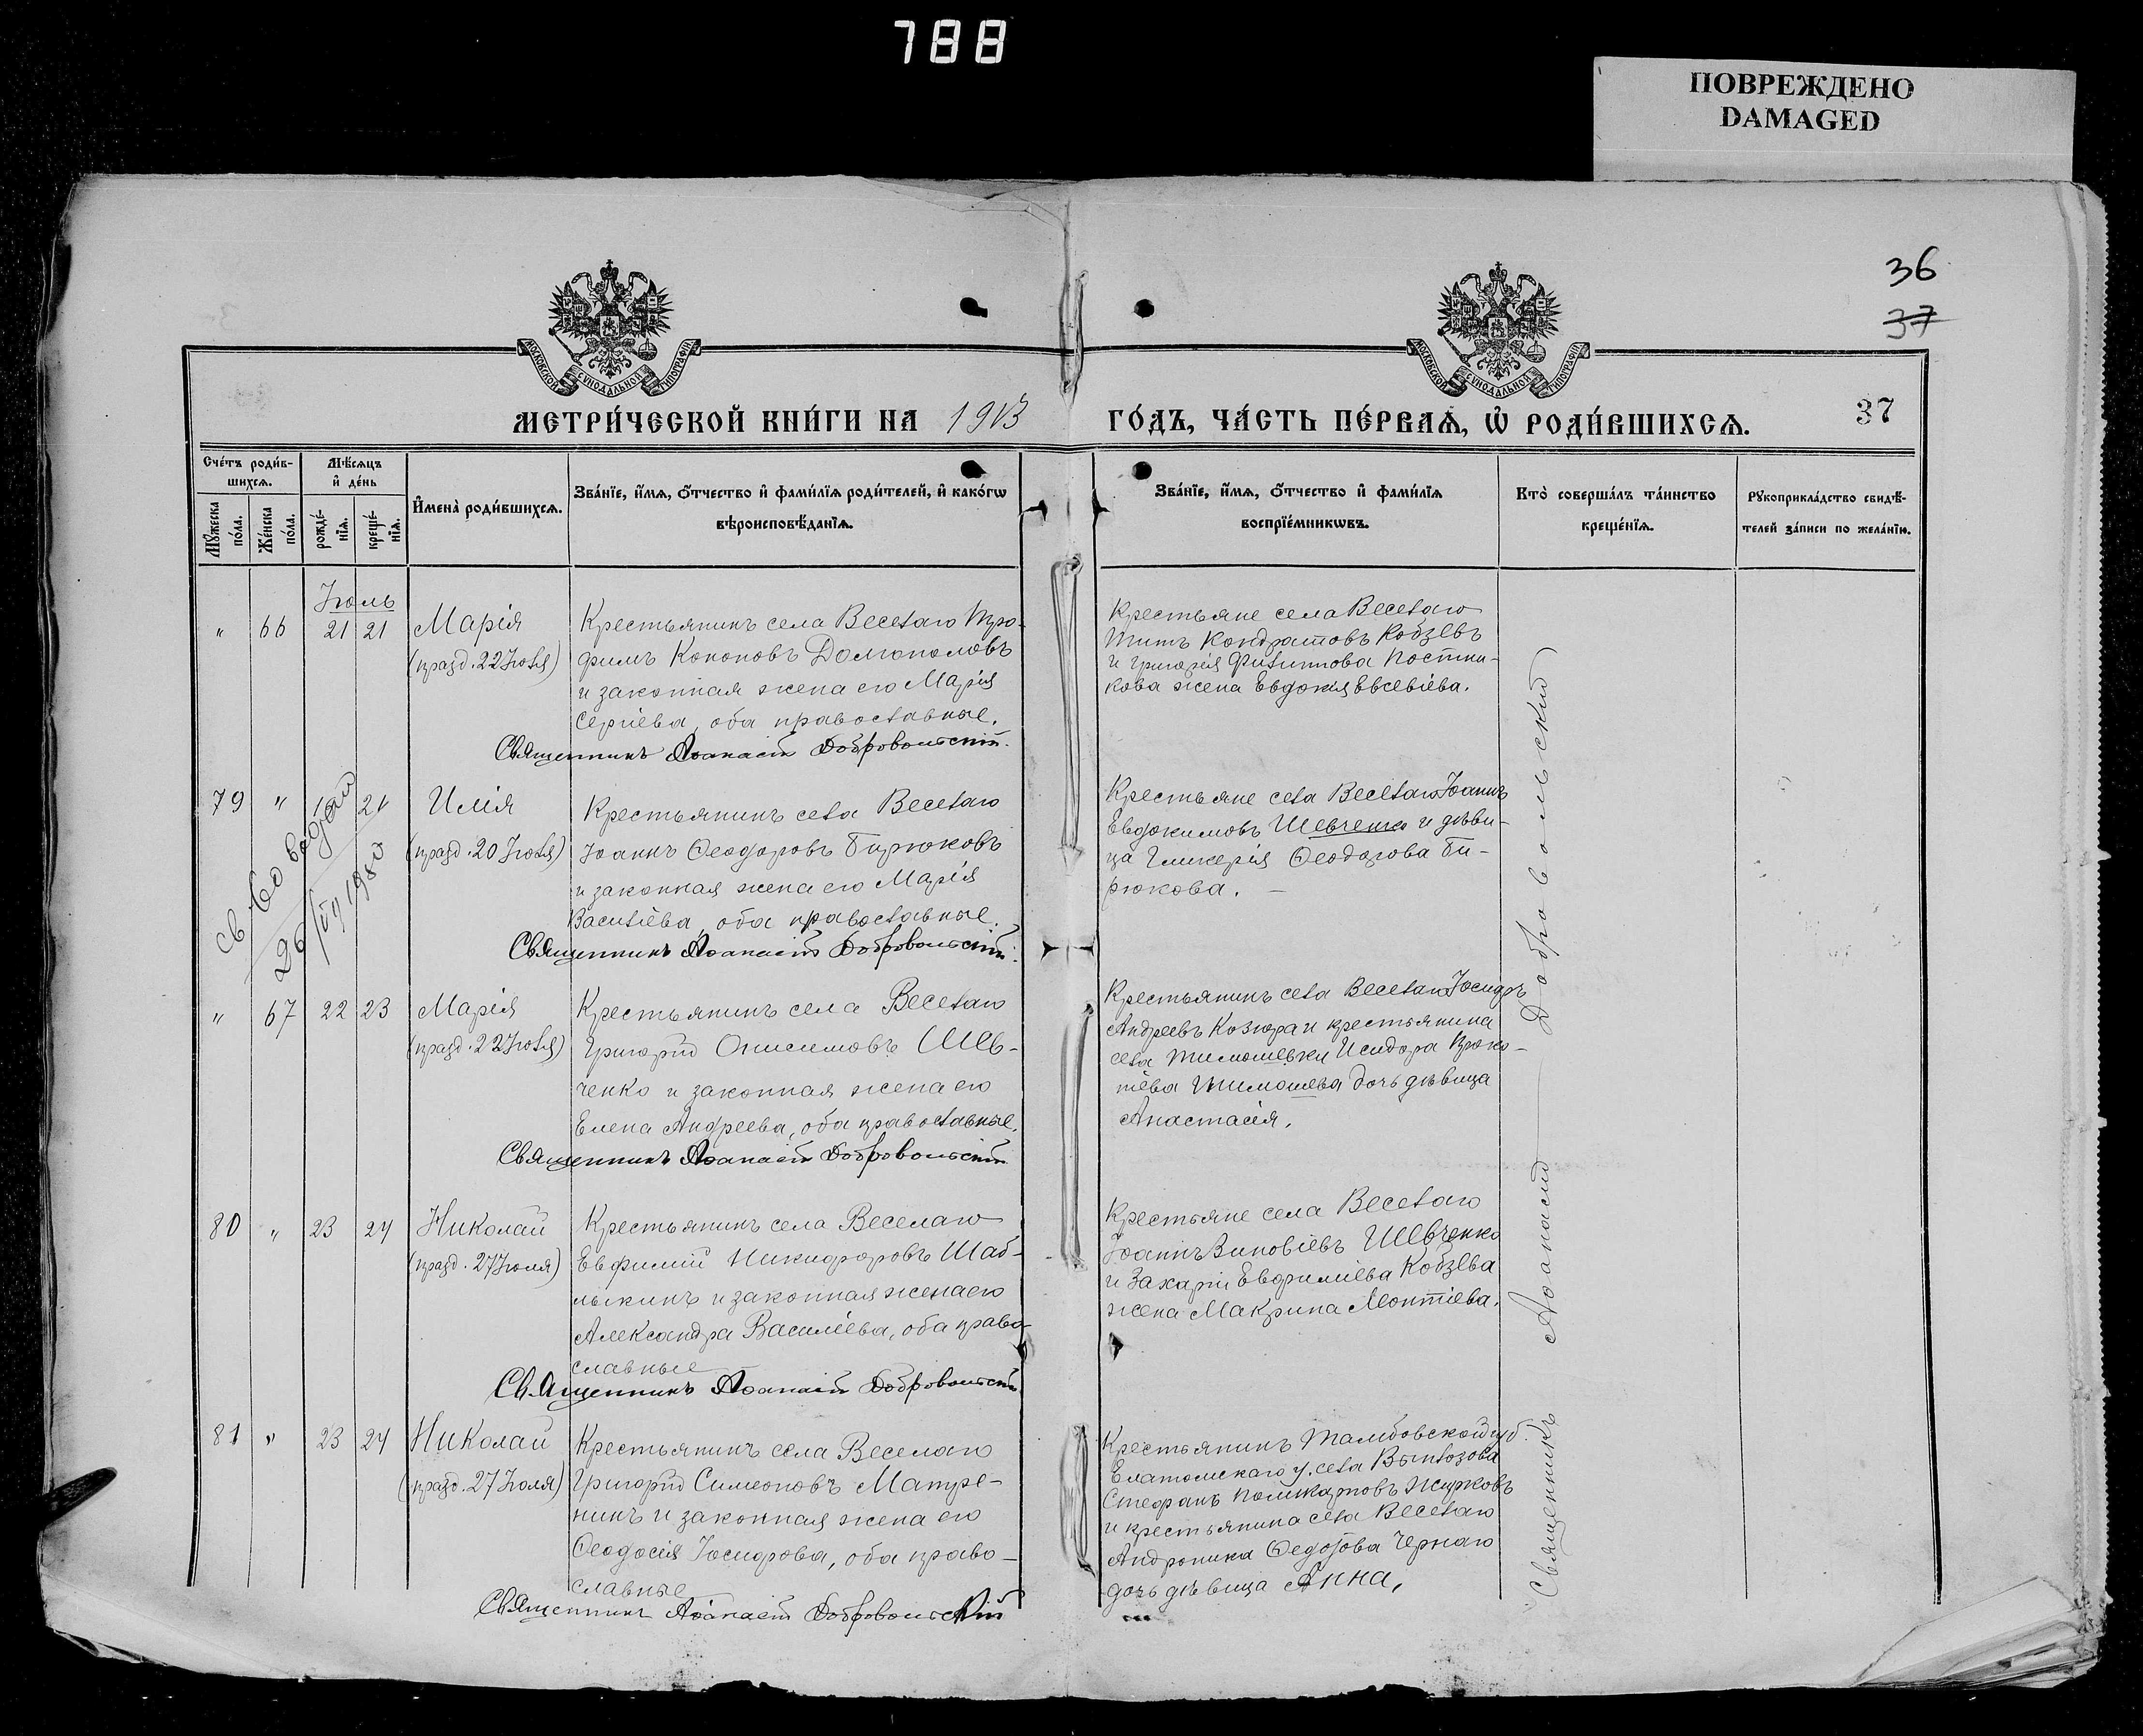 788
ПОВРЕЖДЕНО
DAMAGED
36
37
МОСКОВСКОЙ СУНОДАЛЬНОЙ ТИПОГРАФІИ
МОСКОВСКОЙ СУНОДАЛЬНОЙ ТИПОГРАФІИ
МЕТРИ́ЧЕСКОЙ КНИ́ГИ НА 1913 ГО́ДЪ, ЧА́СТЬ ПЕ́РВАѦ, Ѡ҆ РОДИ́ВШИХСѦ. 37
Сче́тъ роди́в-
шихсѧ.
Мѣ́сѧцъ
и҆ де́нь
Мꙋ́жеска
по́ла.
Же́нска
по́ла.
рожде́-
нїѧ.
креще́-
нїѧ.
И҆мена̀ роди́вшихсѧ.
Зва́нїе, и҆́мѧ, ѻ҆́тчество и҆ фами́лїѧ роди́телей, и҆ како́гѡ
вѣроисповѣ́данїѧ.
Зва́нїе, и҆́мѧ, ѻ҆́тчество и҆ фами́лїѧ
воспрїе́мникѡвъ.
Кто̀ соверша́лъ та́инство
креще́нїѧ.
Рꙋкоприкла́дство свидѣ́-
телей за́писи по жела́нїю.
Іюль
" 66 21 21 Марія
(празд. 22 Іюля)
Крестьянинъ села Веселаго Тро-
фимъ Кононовъ Долгополовъ
и законная жена его Марія
Сергіева, оба православные.
Священникъ Аѳанасій Добровольскій.
Крестьяне села Веселаго
Титъ Кондратовъ Кобзевъ
и Григорія Филиппова Постни-
кова жена Евдокія Евсевіева.
79 " 21 Илія
(празд. 20 Іюля)
Крестьянинъ села Веселаго
Іоаннъ Ѳеодоровъ Бирюковъ
и законная жена его Марія
Василіева, оба православные.
Священникъ Аѳанасій Добровольскій.
Крестьяне села Веселаго Іоаннъ
Евдокимовъ Шевченко и дѣви-
ца Гликерія Ѳеодорова Би-
рюкова.
св-во выдан
26/VII 1950
" 67 22 23 Марія
(празд. 22 Іюля)
Крестьянинъ села Веселаго
Григорій Онисимовъ Шев-
ченко и законная жена его
Елена Андреева, оба православные.
Священникъ Аѳанасій Добровольскій
Крестьянинъ села Веселаго Іосифъ
Андреевъ Козюра и крестьянина
села Тимошевки Исидора Проко-
піева Тимошева дочь дѣвица
Анастасія.
80 " 23 24 Николай
(празд. 27 Іюля)
Крестьянинъ села Веселаго
Евфимій Никифоровъ Шаб-
лыкинъ и законная жена его
Александра Василіева, оба право-
славные
Священникъ Аѳанасій Добровольскій
Крестьяне села Веселаго
Іоаннъ Зиновіевъ Шевченко
и Захарія Евфиміева Кобзева
жена Макрина Леонтіева.
81 " 23 24 Николай
(празд. 27 Іюля)
Крестьянинъ села Веселаго
Григорій Симеоновъ Матре-
нинъ и законная жена его
Ѳеодосія Іосифова, оба право-
славные
Священникъ Аѳанасій Добровольскій
Крестьянинъ Тамбовской губ.
Елатомскаго у. села
Стефанъ Поликарповъ Жирковъ
и крестьянина села Веселаго
Андроника Ѳедотова Чернаго
дочь дѣвица Анна.
Священникъ Аѳанасій Добровольскій